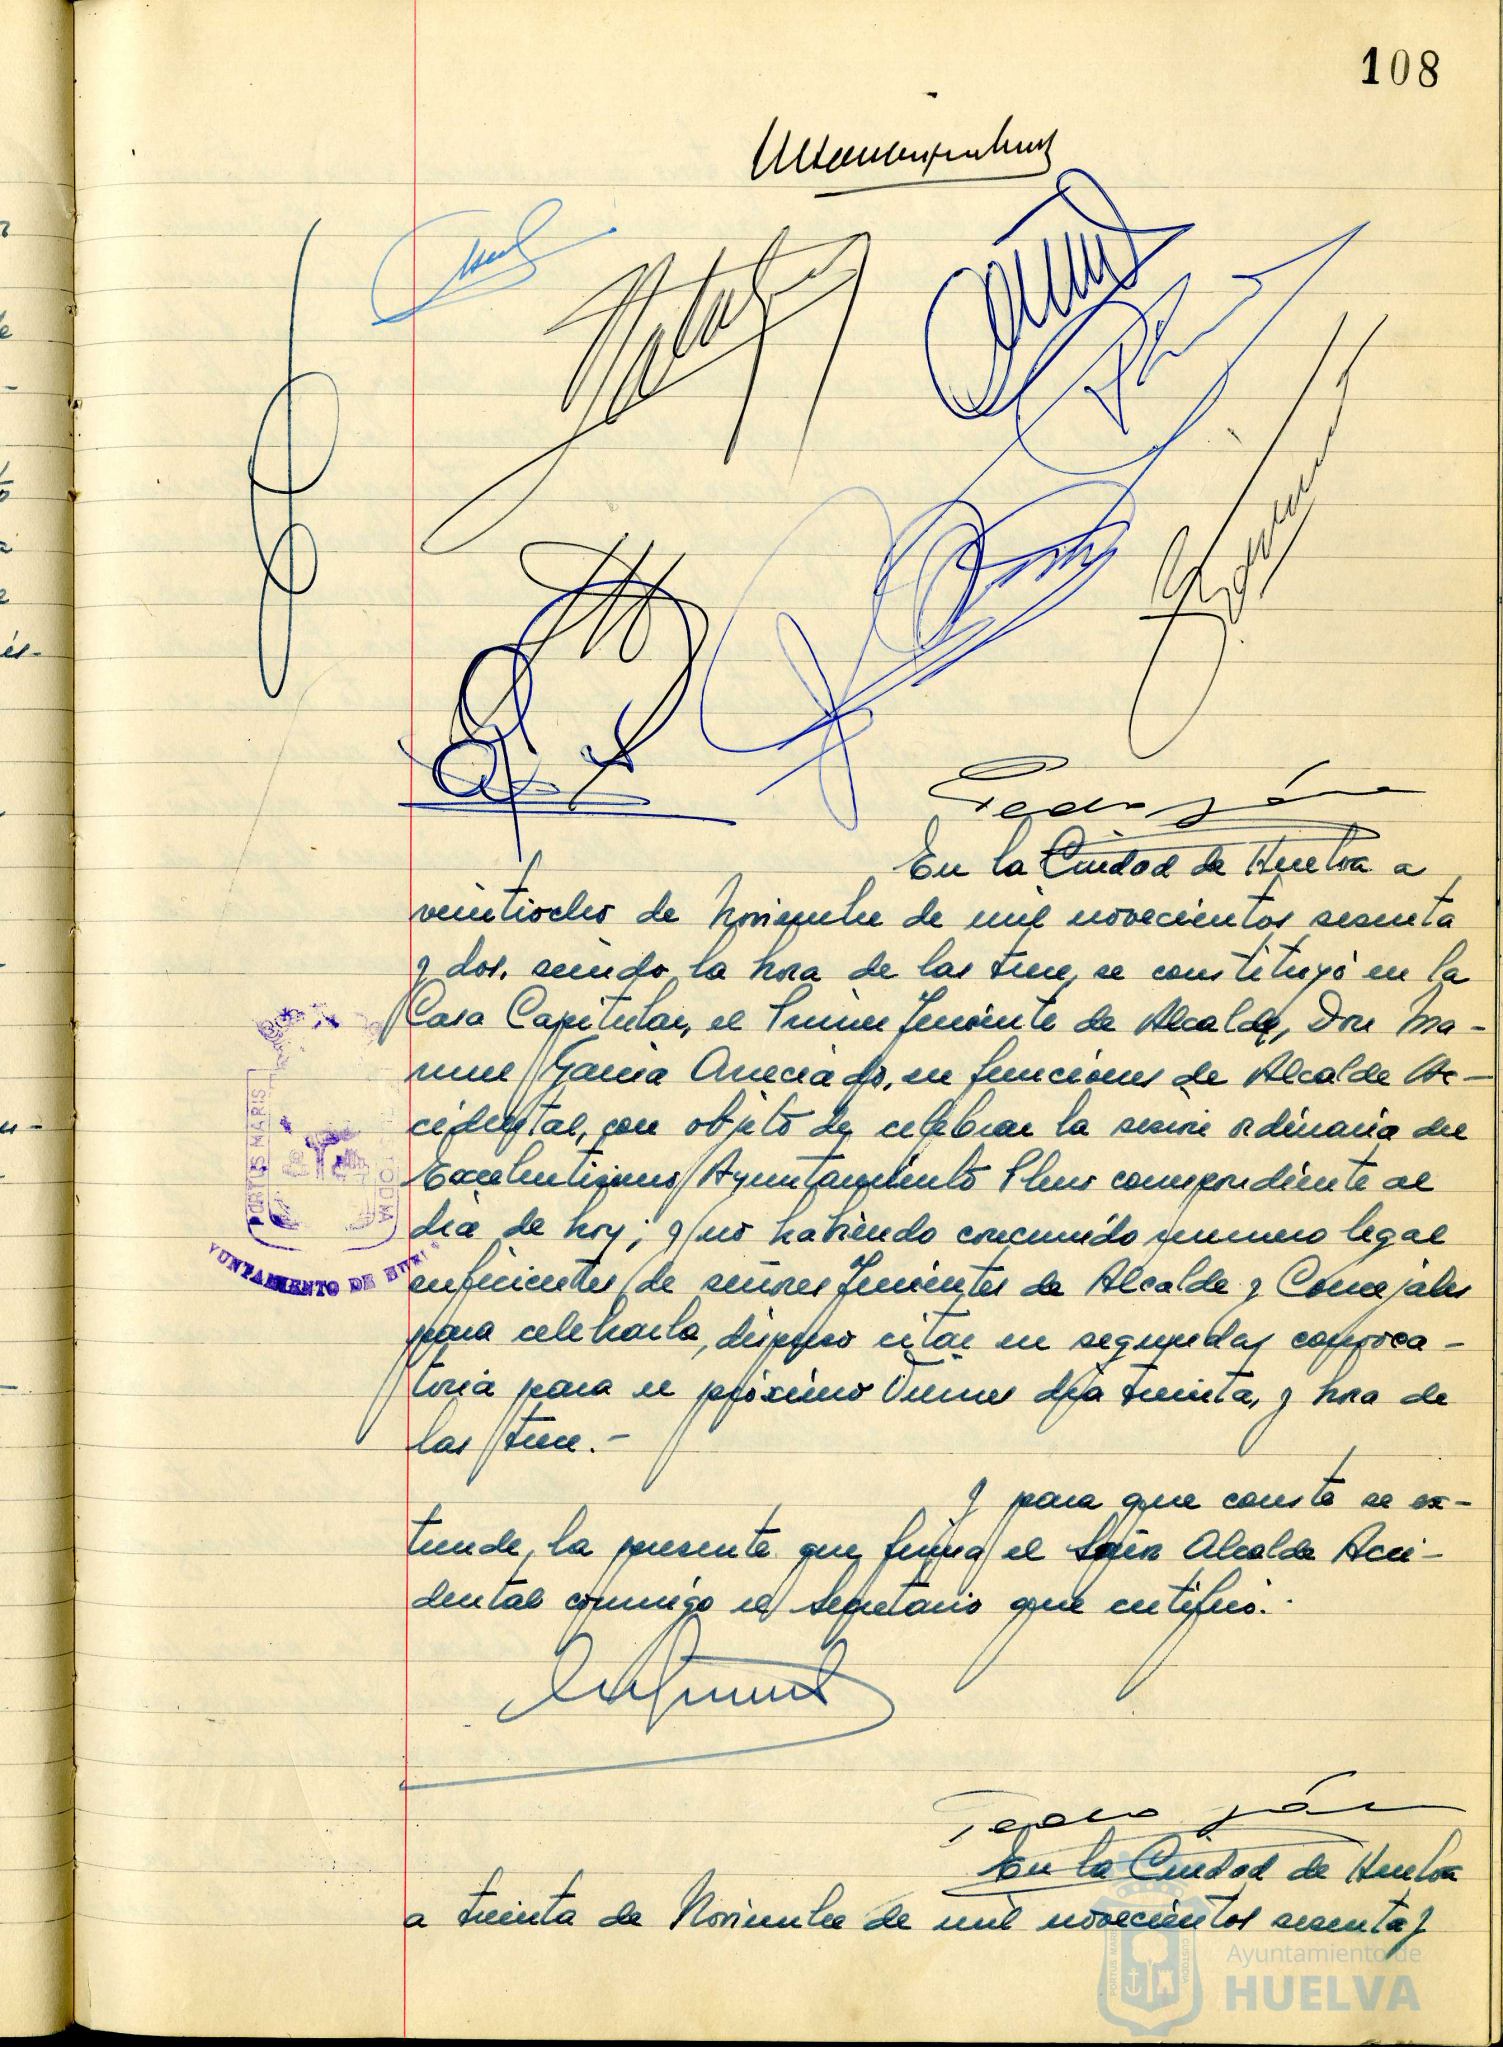 108
Pedro
En la Ciudad de Huelva a
veintiocho de Noviembre de mil novecientos sesenta
y dos, siendo la hora de las trece, se constituyó en la
Casa Capitular, el Primer Teniente de Alcalde, Don Ma-
nuel Garcia en funciones de Alcalde Ac-
cidental, con objeto de celebrar la sesión ordinaria del
Excelentisimo Ayuntamiento Pleno correspondiente al
día de hoy; y no habiendo concurrido numero legal
suficientes de señores Tenientes de Alcalde y Concejales
para celebrarla, dispuso citar en segunda convoca-
toria para el próximo Viernes día treinta, y hora de
las trece.-
Y para que conste se ex-
tiende, la presente que firma el Señor Alcalde Acci-
dental conmigo el Secretario que certifico.-
Pedro
En la Ciudad de Huelva
a treinta de Noviembre de mil novecientos sesenta y
PORTUS MARIS
CUSTODIA
AYUNTAMIENTO DE HUELVA
Ayuntamiento de
HUELVA